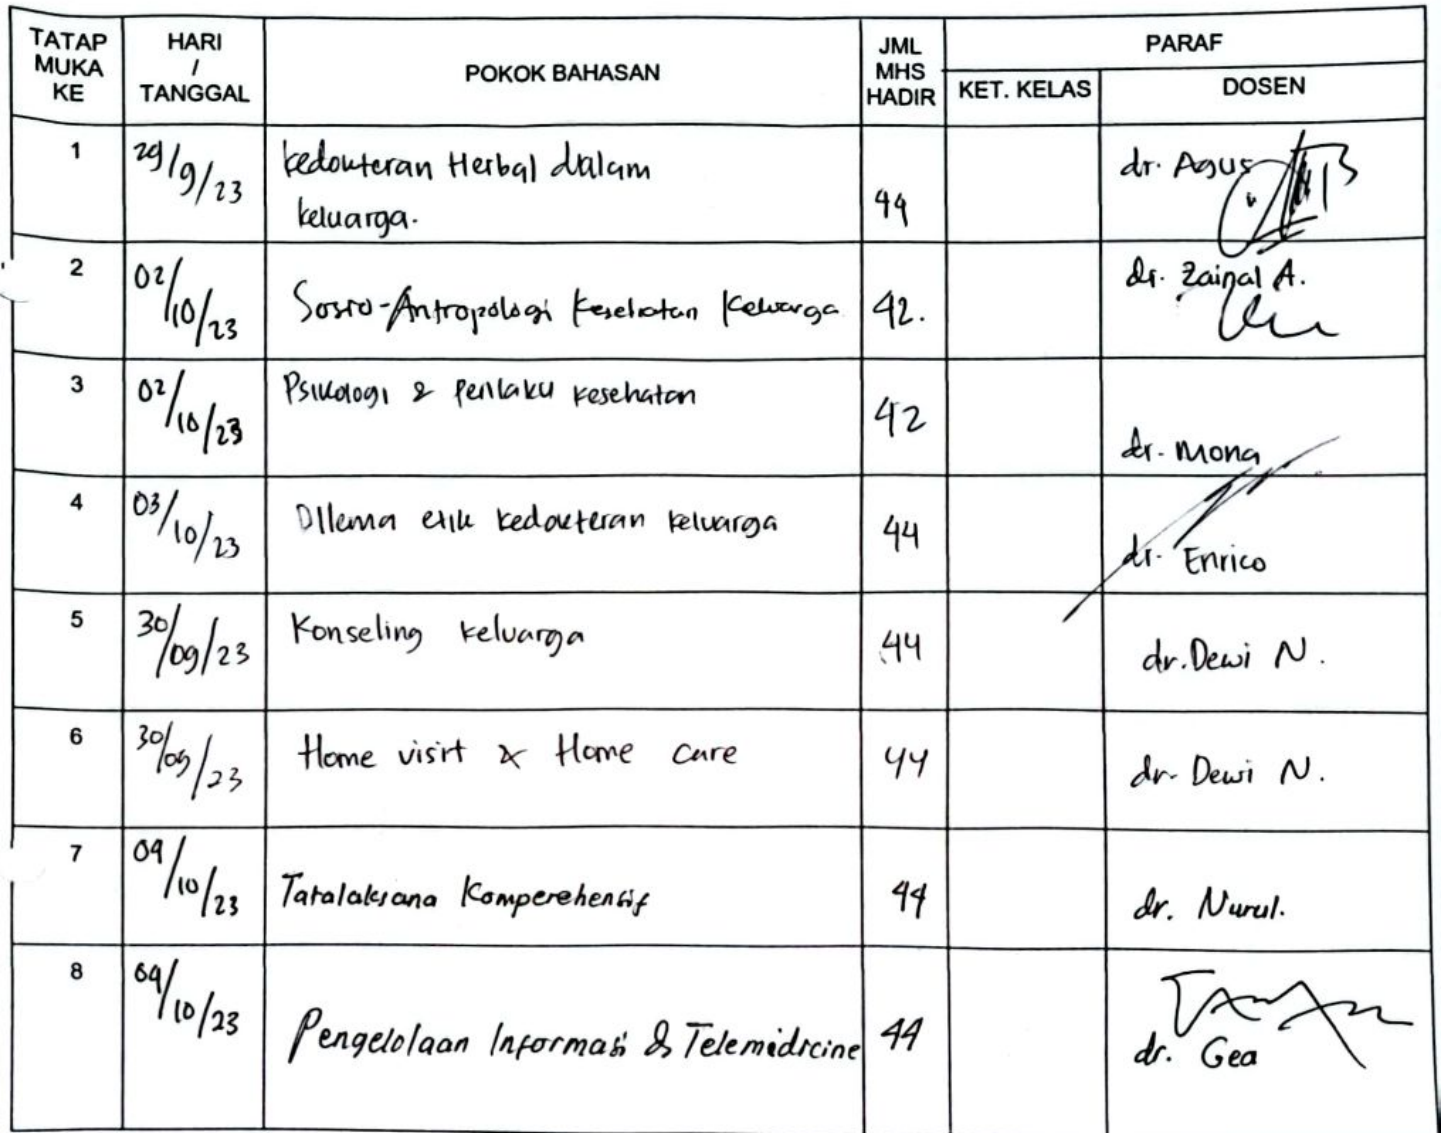 TATAP MUKA KE | HARI / TANGGAL | POKOK BAHASAN | JML MHS HADIR | PARAF
KET. KELAS | DOSEN
1 | 29/9/23 | kedokteran Herbal dalam keluarga. | 44 | dr. Agus
2 | 02/10/23 | Sosio-Antropologi Kesehatan Keluarga | 42. | dr. Zainal A.
3 | 02/10/23 | Psikologi & perilaku kesehatan | 42 | dr. Mona
4 | 03/10/23 | Dilema etik kedokteran keluarga | 44 | dr. Enrico
5 | 30/09/23 | Konseling keluarga | 44 | dr. Dewi N.
6 | 30/09/23 | Home visit & Home care | 44 | dr. Dewi N.
7 | 04/10/23 | Tatalaksana Komperehensif | 44 | dr. Nurul.
8 | 04/10/23 | Pengelolaan Informasi & Telemidicine | 44 | dr. Gea